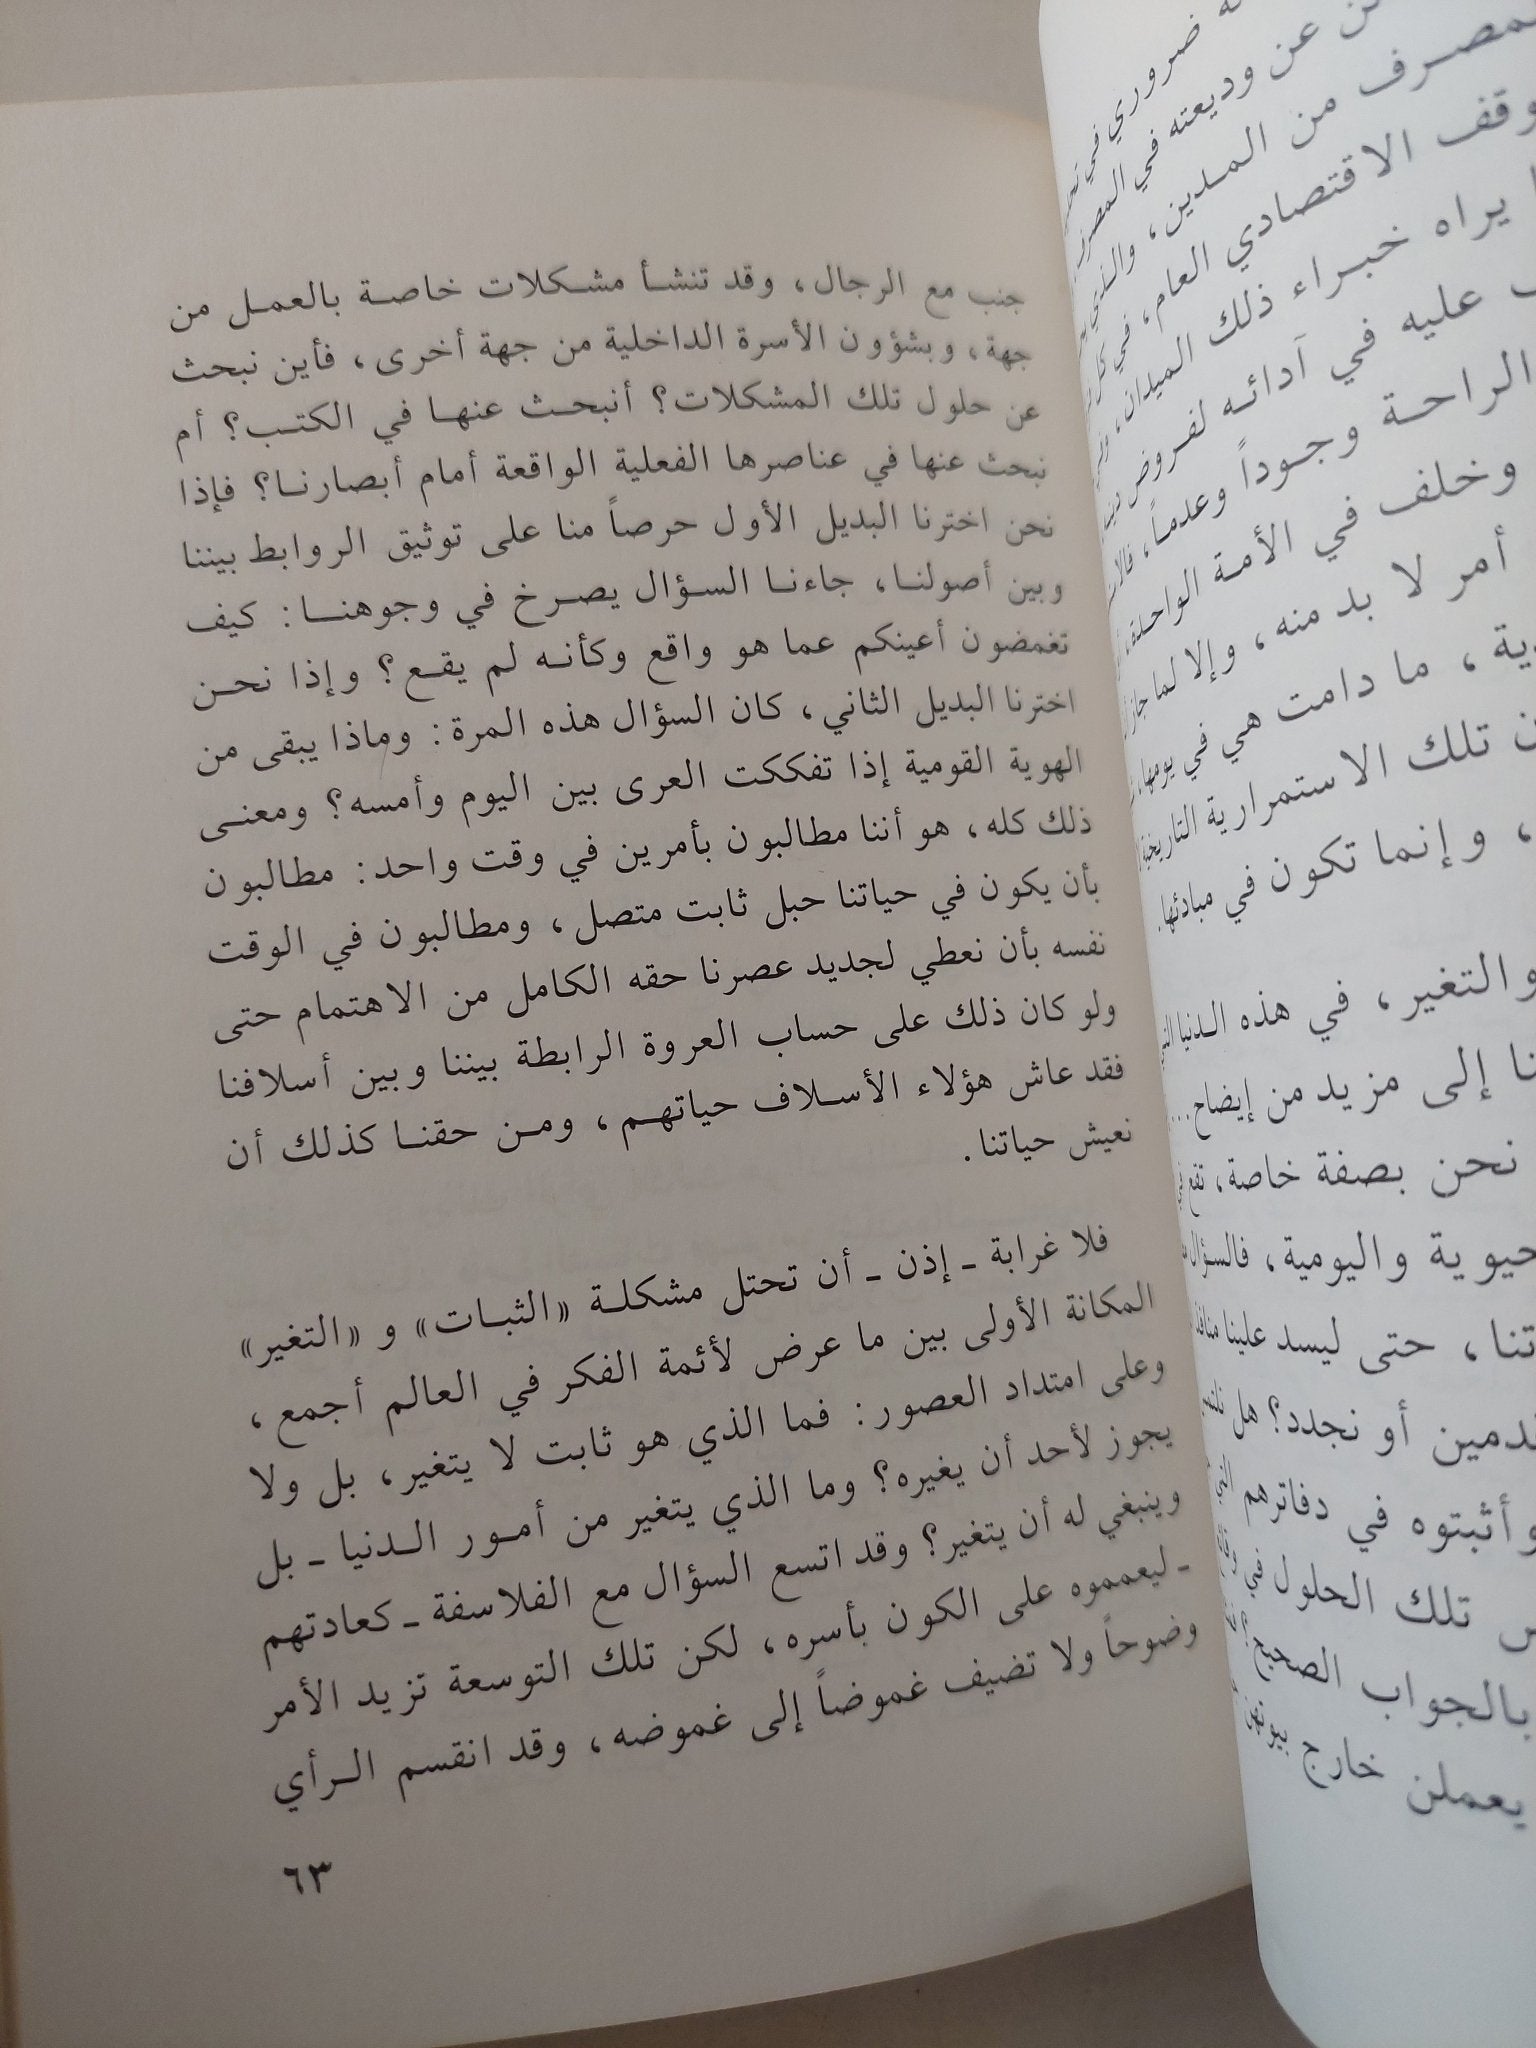 ضروري في
عن وديعته في المصرف
من المدين، والذي
الاقتصادي العام، في كل
يراه خبراء ذلك الميدان،
عليه في آدائه لفروض
الراحة وجوداً وعدماً،
وخلف في الأمة الواحدة،
أمر لا بد منه، وإلا لما جاز
ما دامت هي في يومها،
تلك الاستمرارية التاريخية
، وإنما تكون في مبادئها.
والتغير، في هذه الدنيا التي
إلى مزيد من إيضاح...
نحن بصفة خاصة، تقع في
واليومية، فالسؤال
، حتى ليسد علينا منافذ
أو نجدد؟ هل
وأثبتوه في دفاترهم التي
تلك الحلول في
بالجواب الصحيح
يعملن خارج بيوتهن
جنب مع الرجال، وقد تنشأ مشكلات خاصة بالعمل من
جهة، وبشؤون الأسرة الداخلية من جهة أخرى، فأين نبحث
عن حلول تلك المشكلات؟ أنبحث عنها في الكتب؟ أم
نبحث عنها في عناصرها الفعلية الواقعة أمام أبصارنا؟ فإذا
نحن اخترنا البديل الأول حرصاً منا على توثيق الروابط بيننا
وبين أصولنا، جاءنا السؤال يصرخ في وجوهنا: كيف
تغمضون أعينكم عما هو واقع وكأنه لم يقع؟ وإذا نحن
اخترنا البديل الثاني، كان السؤال هذه المرة: وماذا يبقى من
الهوية القومية إذا تفككت العرى بين اليوم وأمسه؟ ومعنى
ذلك كله، هو أننا مطالبون بأمرين في وقت واحد: مطالبون
بأن يكون في حياتنا حبل ثابت متصل، ومطالبون في الوقت
نفسه بأن نعطي لجديد عصرنا حقه الكامل من الاهتمام حتى
ولو كان ذلك على حساب العروة الرابطة بيننا وبين أسلافنا
فقد عاش هؤلاء الأسلاف حياتهم، ومن حقنا كذلك أن
نعيش حياتنا.
فلا غرابة ـ إذن ـ أن تحتل مشكلة «الثبات» و «التغير»
المكانة الأولى بين ما عرض لأئمة الفكر في العالم أجمع،
وعلى امتداد العصور: فما الذي هو ثابت لا يتغير، بل ولا
يجوز لأحد أن يغيره؟ وما الذي يتغير من أمور الدنيا ـ بل
وينبغي له أن يتغير؟ وقد اتسع السؤال مع الفلاسفة ـ كعادتهم
ـ ليعمموه على الكون بأسره، لكن تلك التوسعة تزيد الأمر
وضوحاً ولا تضيف غموضاً إلى غموضه، وقد انقسم الرأي
٦٣